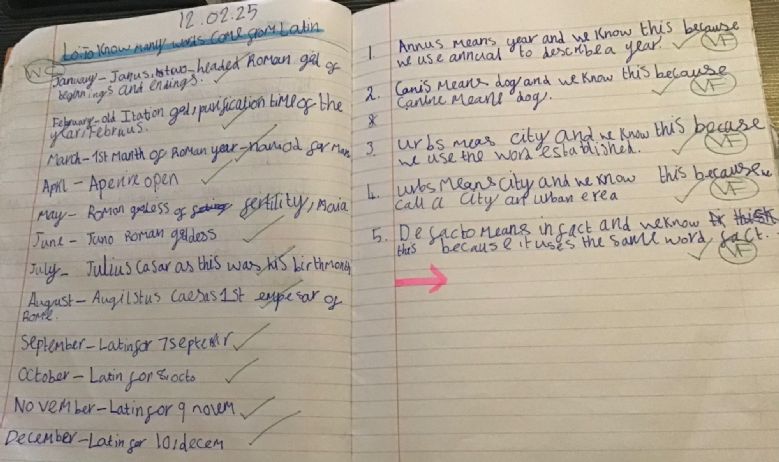 12.02.25
Lo: To Know many words come from Latin
WC
January - Janus, is two-headed Roman god of
beginnings and endings.
February - old Itation god, purification time of the
year, Februus.
March - 1st Month of Roman year - named for Mars
April - Aperire open
May - Roman godess of fertility, Maia
June - Juno Roman goddess
July - Julius Casar as this was his birthmonth
August - Augilstus Caesas 1st empesar of
Rome.
September - Latin for 7 septemr
October - Latin for 8 octo
November - Latin for 9 novem
December - Latin for 10, decem
1. Annus Means year and we Know this because
we use annual to describe a year. VF
2. Canis Means dog and we know this because
Canine Means dog. VF
3. urbs meas city and we know this because
we use the word established. VF
4. urbs Means city and we know this because we
call a city an urban erea VF
5. De facto Means in fact and we know
this because it uses the same word, fact. VF